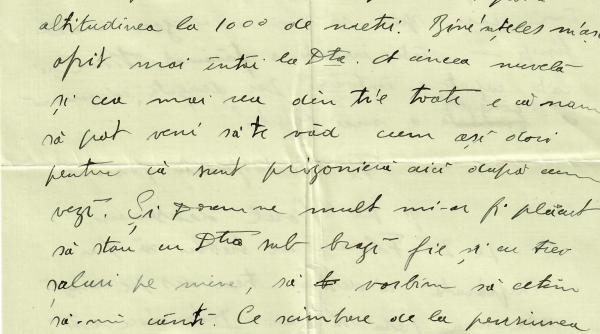 altitudinea la 1000 de metri. Bineînțeles m'aș
oprit mai întâi la Dta. A cincea nuvelă
și cea mai rea din t'e toate e că nam
să pot veni să te văd cum ași dori
pentru că sunt prizonieră aici după cum
vezi. Și Doamne mult mi-ar fi plăcut
să stau cu Dta sub brazi fie și cu trei
șaluri pe mine, să vorbim să citim
să-mi cânți. Ce scimbare de la pensiunea